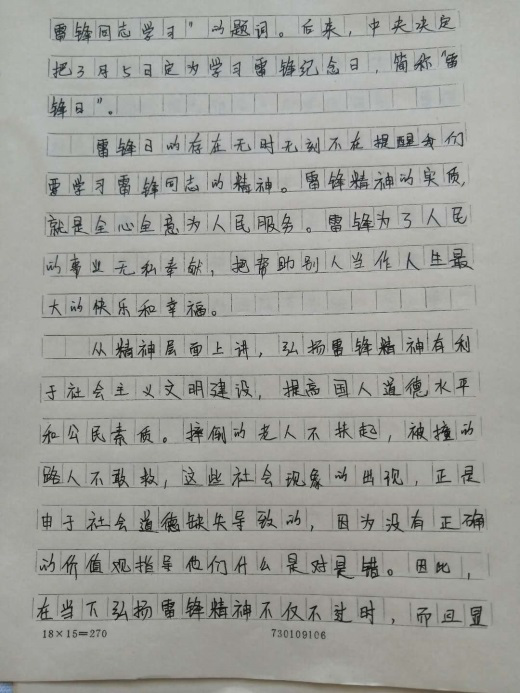 雷锋同志学习"的题词。后来，中央决定
把3月5日定为学习雷锋纪念日，简称"雷
锋日"。
雷锋日的存在无时无刻不在提醒我们
要学习雷锋同志的精神。雷锋精神的实质，
就是全心全意为人民服务。雷锋为了人民
的事业无私奉献，把帮助别人当作人生最
大的快乐和幸福。
从精神层面上讲，弘扬雷锋精神有利
于社会主义文明建设，提高国人道德水平
和公民素质。摔倒的老人不扶起，被撞的
路人不敢救，这些社会现象的出现，正是
由于社会道德缺失导致的，因为没有正确
的价值观指导他们什么是对是错。因此，
在当下弘扬雷锋精神不仅不过时，而且显
18×15=270 730109106